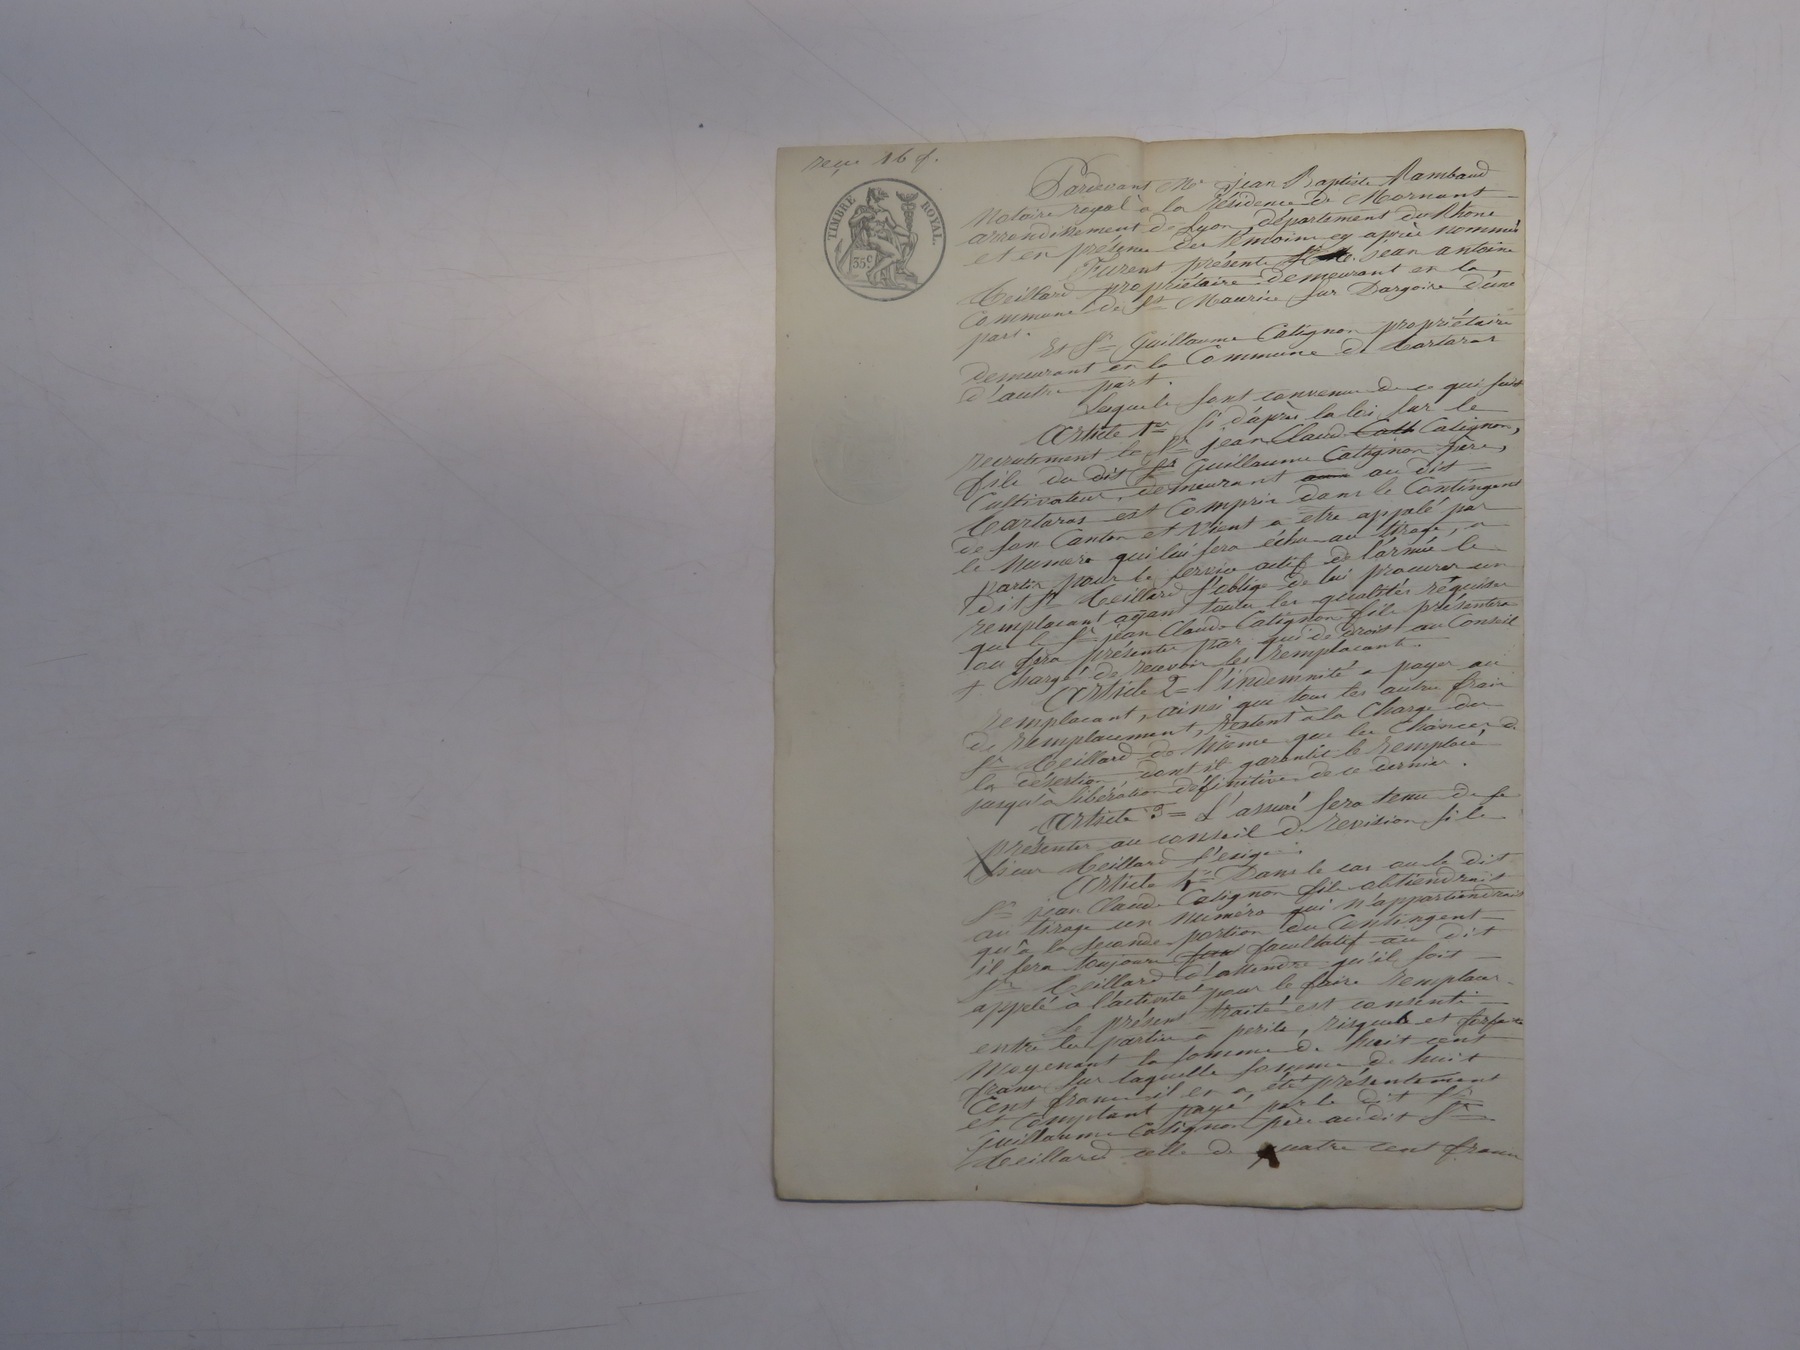 reçu 16 f.
TIMBRE ROYAL.
35 c
Pardevant Me jean Baptiste Rambaud
Notaire royal à la résidence de Mornant
arrondissement de Lyon, département du Rhone
et en présence des témoins cy après nommés
Furent présents Sr jean antoine
Teillard propriétaire demeurant en la
Commune de St Maurice sur Dargoire d'une
part.
Et Sr Guillaume Catignon propriétaire
demeurant en la Commune de Tartaras
d'autre part.
Lesquels sont convenus de ce qui suit
Article 1er Si d'après la loi sur le
recrutement le Sr jean Claude Catignon,
fils du dit Sr Guillaume Catignon père,
Cultivateur, demeurant au dit
Tartaras est Compris dans le Contingent
de son Canton et Vient a être appelé par
le Numéro qui lui sera échu au tirage, a
partir pour le service actif de l'armée le
dit Sr Teillard s'oblige de lui procurer un
remplacant ayant toutes les qualités réquises
que le Sr jean Claude Catignon fils présentera
ou fera présenter par qui de droit au Conseil
+ Chargé de recevoir les remplacants.
Article 2= l'indemnité a payer au
remplacant, ainsi que tous les autres frais
de remplacement, restent à la Charge du
Sr Teillard de même que les Chances de
la désertion dont il garantit le remplacé,
jusqu'à libération définitive de ce dernier.
Article 3= L'assuré sera tenu de se
présenter au conseil de révision si le
sieur Teillard l'exige.
Article 4= Dans le cas ou le dit
Sr jean Claude Catignon fils obtiendrait
au tirage un numéro qui n'appartiendrait
qu'à la seconde portion du Contingent
il sera toujours facultatif au dit
Sr Teillard d'attendre qu'il soit
appelé à l'activité pour le faire remplacer.
Le présent traité est consenti
entre les parties a périls, risques et forfait
Moyenant la somme de huit cent
francs sur laquelle somme de huit
Cent francs il en a été présentement
et comptant payé par le dit Sr
Guillaume Catignon père audit Sr
Teillard celle de quatre cent francs